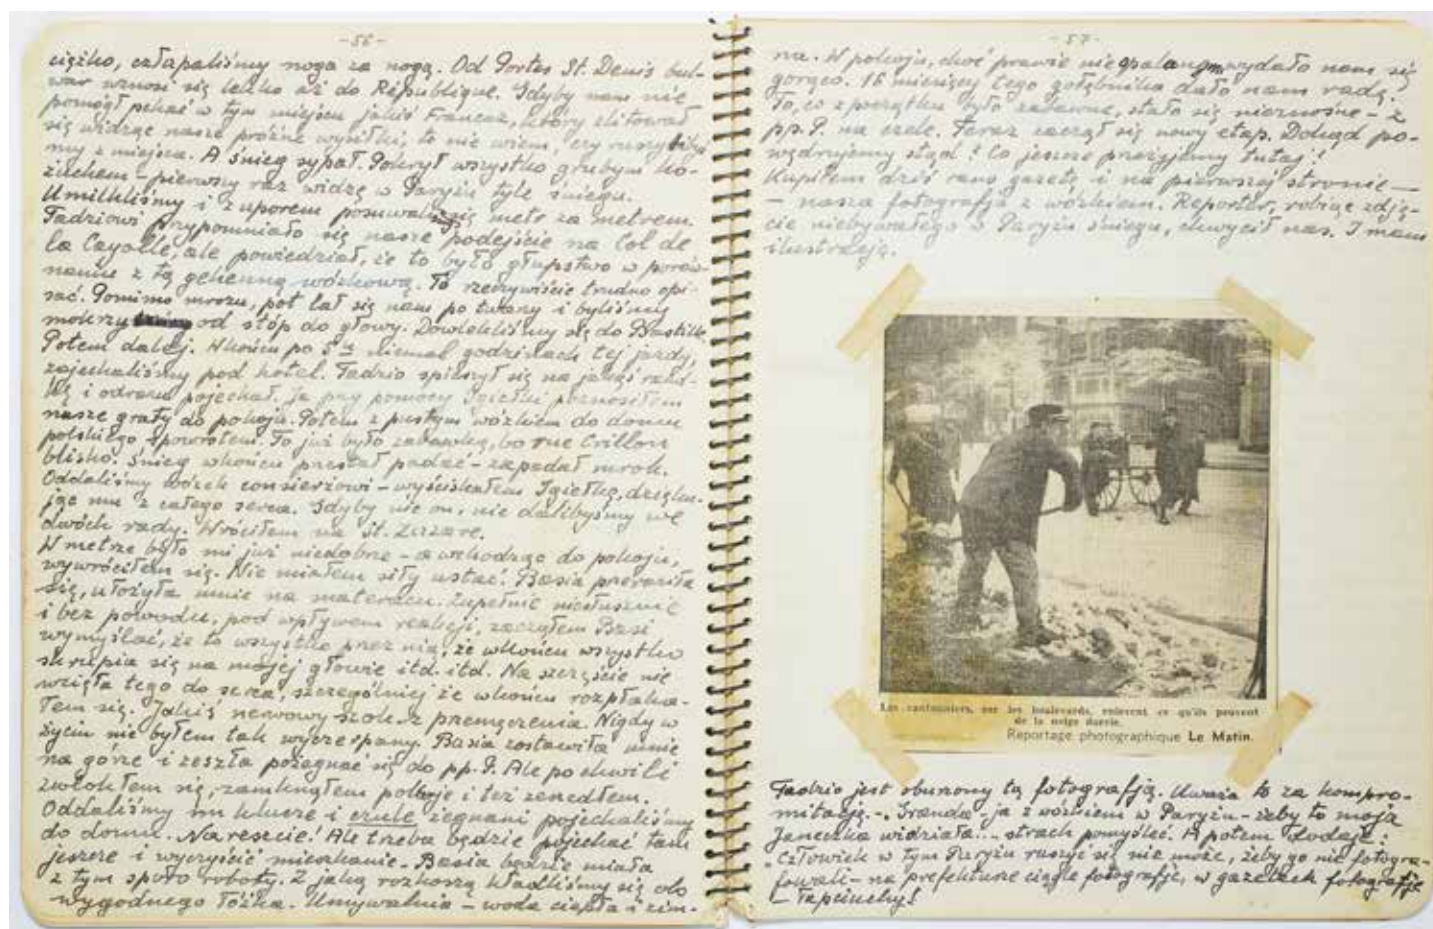 -56-
ciężko, człapaliśmy noga za nogą. Od Portes St. Denis bul-
war wznosi się lekko aż do République. Gdyby nam nie
pomógł pchać w tym miejscu jakiś Francuz, który zlitował
się widząc nasze próżne wysiłki, to nie wiem, czy ruszylibyś
my z miejsca. A śnieg sypał. Pokrył wszystko grubym ko-
żuchem - pierwszy raz widzę w Paryżu tyle śniegu.
Umilkliśmy i z uporem posuwaliśmy się metr za metrem.
Tadziowi przypomniało się nasze podejście na Col de
la Cayolle, ale powiedział, że to było głupstwo w porów-
naniu z tą gehenną wózkową. To rzeczywiście trudno opi-
sać. Pomimo mrozu, pot lał się nam po twarzy i byliśmy
mokrzy od stóp do głowy. Dowlekliśmy się do Bastille
Potem dalej. Wkońcu po 5-u niemal godzinach tej jazdy,
zajechaliśmy pod hotel. Tadzio spieszył się na jakąś rand-
kę i odrazu pojechał. Ja przy pomocy Igiełki poznosiłem
nasze graty do pokoju. Potem z pustym wózkiem do domu
polskiego spowrotem. To już było zabawką, bo rue Crillon
blisko. Śnieg wkońcu przestał padać - zapadał mrok.
Oddaliśmy wózek consierżowi - wyściskałem Igiełkę, dzięku-
jąc mu z całego serca. Gdyby nie on, nie dalibyśmy we
dwóch rady. Wróciłem na St. Lazare.
W metrze było mi już niedobrze - a wchodząc do pokoju,
wywróciłem się. Nie miałem siły wstać. Basia przeraziła
się, ułożyła mnie na materacu. Zupełnie niesłusznie
i bez powodu, pod wpływem reakcji, zacząłem Basi
wymyślać, że to wszystko przez nią, że wkońcu wszystko
skrupia się na mojej głowie itd. itd. Na szczęście nie
wzięła tego do serca, szczególniej że wkońcu rozpłaka-
łem się. Jakiś nerwowy szok z przemęczenia. Nigdy w
życiu nie byłem tak wyczerpany. Basia zostawiła mnie
na górze i zeszła pożegnać się do pp. P. Ale po chwili
zwlokłem się, zamknąłem pokoje i też zeszedłem.
Oddaliśmy im klucze i czule żegnani pojechaliśmy
do domu. Nareszcie! Ale trzeba będzie pojechać tam
jeszcze i wyczyścić mieszkanie. Basia będzie miała
z tym sporo roboty. Z jaką rozkoszą kładliśmy się do
wygodnego łóżka. Umywalnia - woda ciepła i zim-
-57-
na. W pokoju, choć prawie nie opalanym wydało nam się
gorąco. 16 miesięcy tego gołębnika dało nam radę.
To, co z początku było zabawne, stało się nieznośne - z
pp. P. na czele. Teraz zaczął się nowy etap. Dokąd po-
wędrujemy stąd? Co jeszcze przeżyjemy tutaj?
Kupiłem dziś rano gazetę i na pierwszej stronie -
- nasza fotografja z wózkiem. Reporter, robiąc zdję-
cie niebywałego w Paryżu śniegu, chwycił nas. I mam
ilustrację.
Les cantonniers, sur les boulevards, enlèvent ce qu'ils peuvent
de la neige durcie.
Reportage photographique Le Matin.
Tadzio jest oburzony tą fotografją. Uważa to za kompro-
mitację. - "Granda - ja z wózkiem w Paryżu - żeby to moja
Janeczka widziała... strach pomyśleć. A potem dodaje:
"Człowiek w tym Paryżu ruszyć się nie może, żeby go nie fotogra-
fowali - na prefekturze ciągle fotografje, w gazetach fotografje
- Łapciuchy!